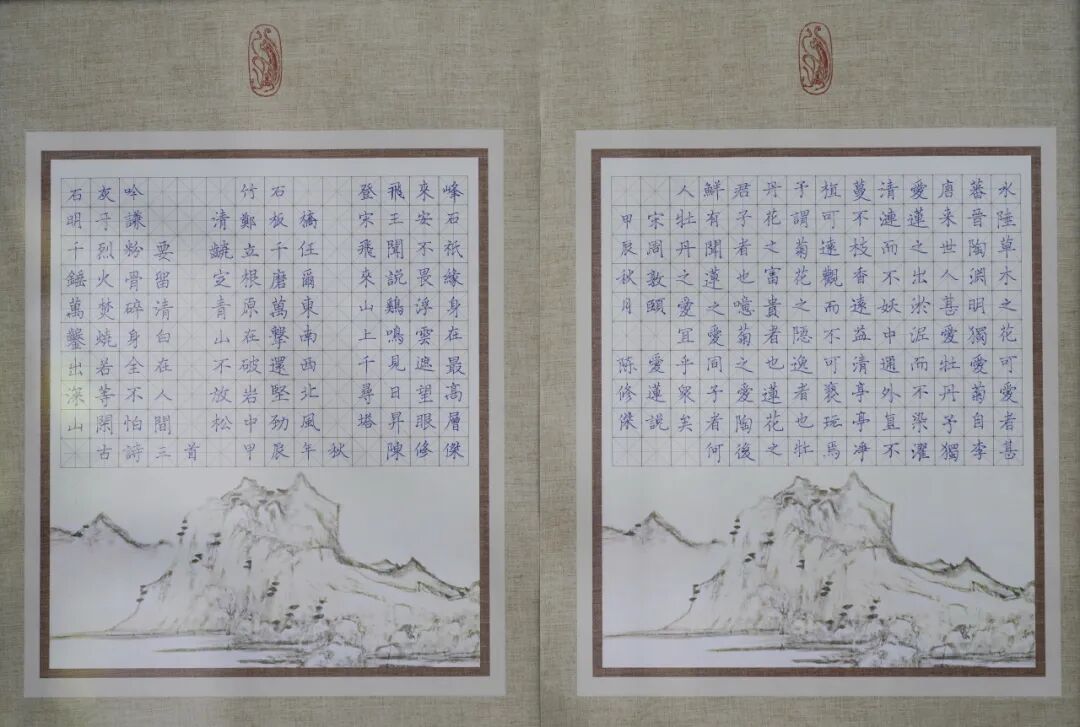 石灰吟
明于謙
千錘萬鑿出深山
烈火焚燒若等閑
粉骨碎身全不怕
要留清白在人間
竹石
清鄭板橋
齩定青山不放松
立根原在破岩中
千磨萬擊還堅劲
任爾東南西北風
登飛來峰
宋王安石
飛來山上千尋塔
聞説鷄鳴見日昇
不畏浮雲遮望眼
祇緣身在最高層
古詩三首 甲辰年秋 陳修傑
水陸草木之花可愛者甚
蕃晉陶渊明獨愛菊自李
唐来世人甚愛牡丹予獨
愛蓮之出淤泥而不染濯
清漣而不妖中通外直不
蔓不枝香遠益清亭亭净
植可遠觀而不可褻玩焉
予謂菊花之隐逸者也牡
丹花之富貴者也蓮花之
君子者也噫菊之愛陶後
鮮有聞蓮之愛同予者何
人牡丹之愛宜乎衆矣
宋周敦頤 愛蓮説
甲辰秋月 陳修傑